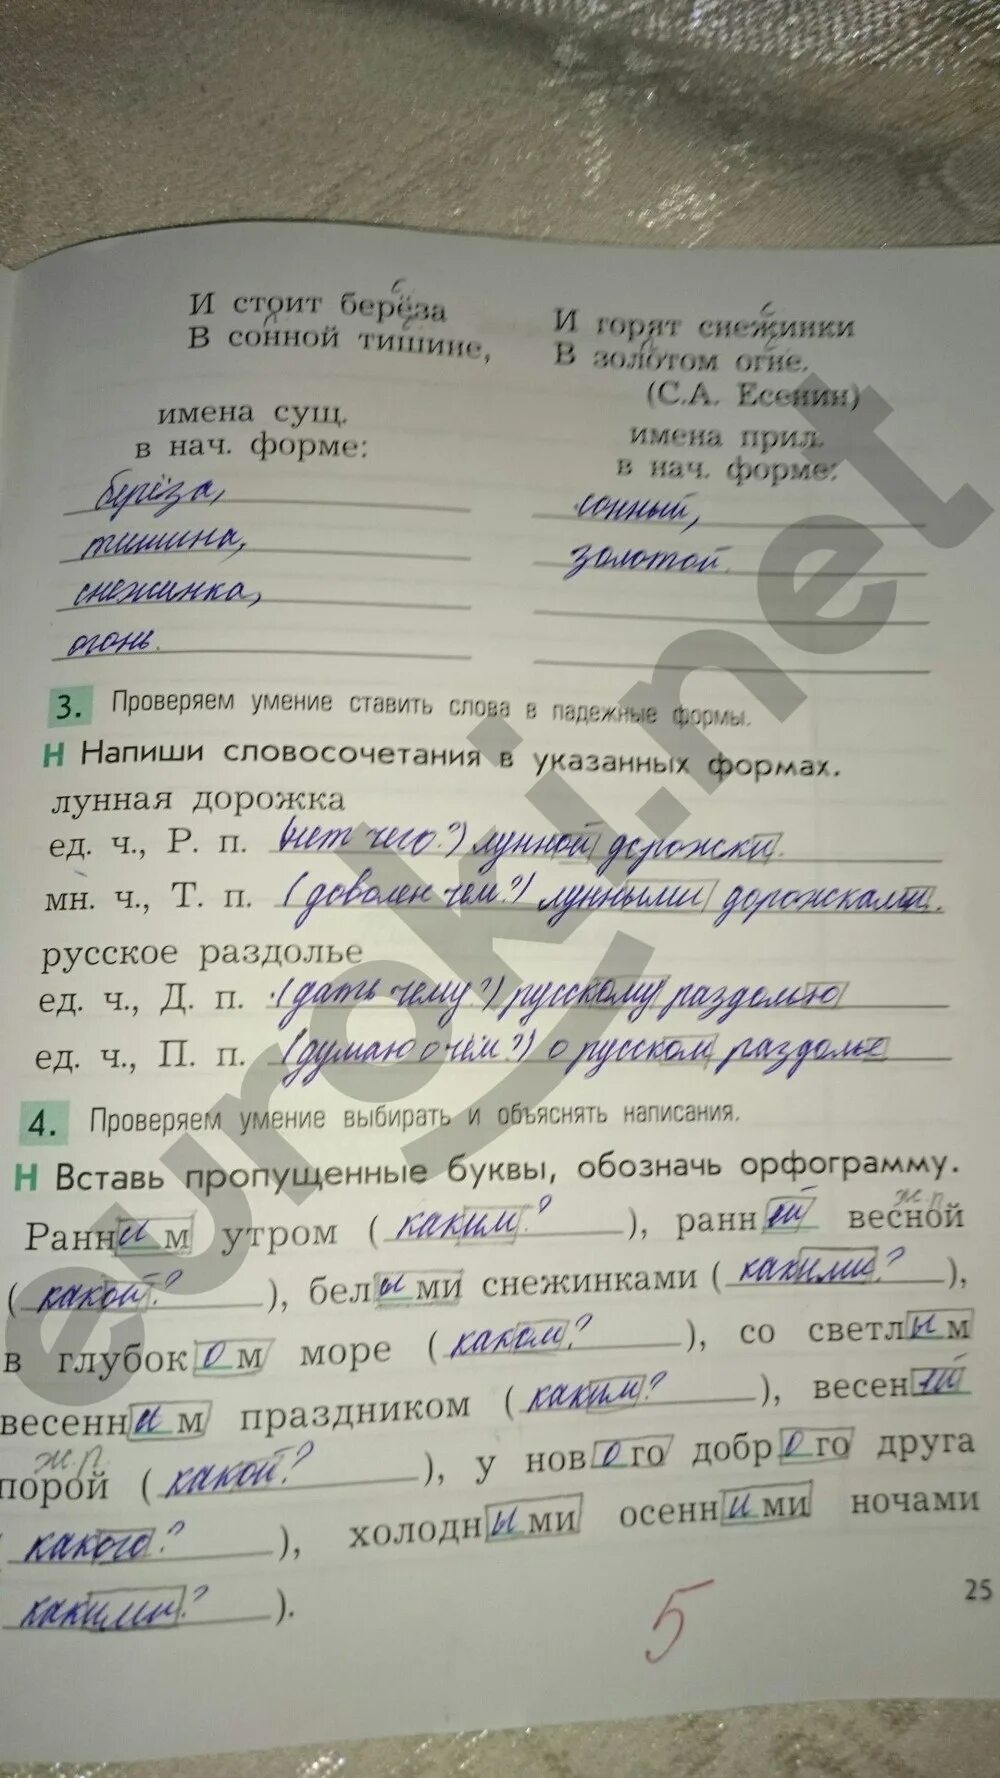 И стоит берёза
В сонной тишине,
И горят снежинки
В золотом огне.
(С.А. Есенин)
имена сущ.
в нач. форме:
берёза,
тишина,
снежинка,
огонь.
имена прил.
в нач. форме:
сонный,
золотой.
3. Проверяем умение ставить слова в падежные формы.
Н Напиши словосочетания в указанных формах.
лунная дорожка
ед. ч., Р. п. (нет чего?) лунной дорожки.
мн. ч., Т. п. (доволен чем?) лунными дорожками.
русское раздолье
ед. ч., Д. п. (дать чему?) русскому раздолью
ед. ч., П. п. (думаю о чём?) о русском раздолье
4. Проверяем умение выбирать и объяснять написания.
Н Вставь пропущенные буквы, обозначь орфограмму.
ж.р.
Ранним утром (каким?), ранней весной
(какой?), белыми снежинками (какими?),
в глубоком море (каком?), со светлым
весенним праздником (каким?), весенней
ж.р.
порой (какой?), у нового доброго друга
(какого?), холодными осенними ночами
(какими?).
5
25
euroki.net